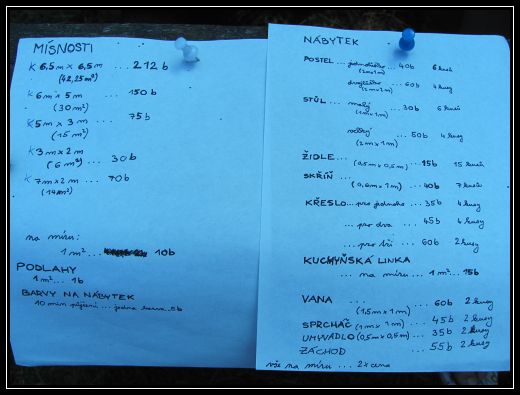 MÍSNOSTI
K 6,5 m x 6,5 m ... 212 b
(42,25 m²)
K 6 m x 5 m ... 150 b
(30 m²)
K 5 m x 3 m ... 75 b
(15 m²)
K 3 m x 2 m
(6 m²) ... 30 b
K 7 m x 2 m ... 70 b
(14 m²)
na míru:
1 m² ... 10 b
PODLAHY
1 m² ... 1 b
BARVY NA NÁBYTEK
10 min půjčení ... jedna barva 5 b
NÁBYTEK
POSTEL ... jednolůžko ... 40 b 6 kusů
(2 m x 1 m)
dvojlůžko ... 60 b 4 kusy
(2 m x 2 m)
STŮL ... malý ... 30 b 6 kusů
(1 m x 1 m)
velký ... 50 b 4 kusy
(2 m x 1 m)
ŽIDLE ...
(0,5 m x 0,5 m) ... 15 b 15 kusů
SKŘÍŇ ...
(0,6 m x 1 m) ... 40 b 7 kusů
KŘESLO ... pro jednoho ... 35 b 4 kusy
... pro dva ... 45 b 4 kusy
... pro tři ... 60 b 2 kusy
KUCHYŇSKÁ LINKA
... na míru ... 1 m² ... 15 b
VANA ... ... 60 b 2 kusy
(1,5 m x 1 m)
SPRCHÁČ (1 m x 1 m) ... 45 b 2 kusy
UMYVADLO (0,5 m x 0,5 m) ... 35 b 2 kusy
ZÁCHOD ... 55 b 2 kusy
vše na míru ... 2x cena